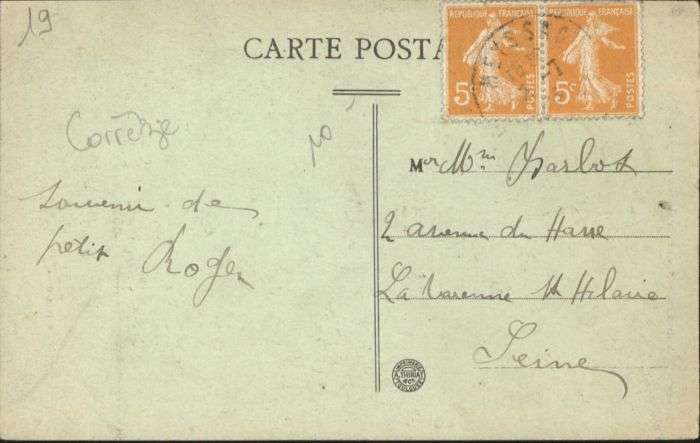 19
CARTE POSTA
RÉPUBLIQUE FRANÇAISE
5c
POSTES
RÉPUBLIQUE FRANÇAISE
5c
POSTES
MEYSSAC
Corrèze
10
souvenir de
petit Roger
Mr Mme
2 avenue du Havre
La Varenne St Hilaire
Seine
IMPRIMERIE
A. THIRIAT
TOULOUSE